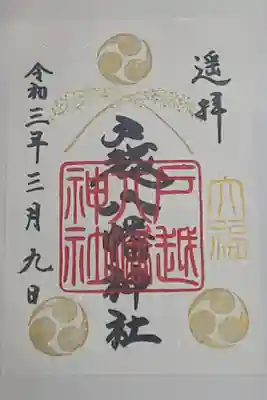 遥拝
大福
戸越八幡神社
戸越
八幡
神社
令和三年三月九日